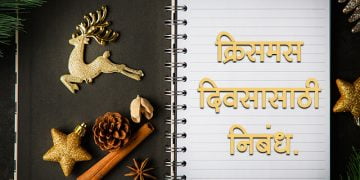 क्रिसमस
दिवसासाठी
निबंध.